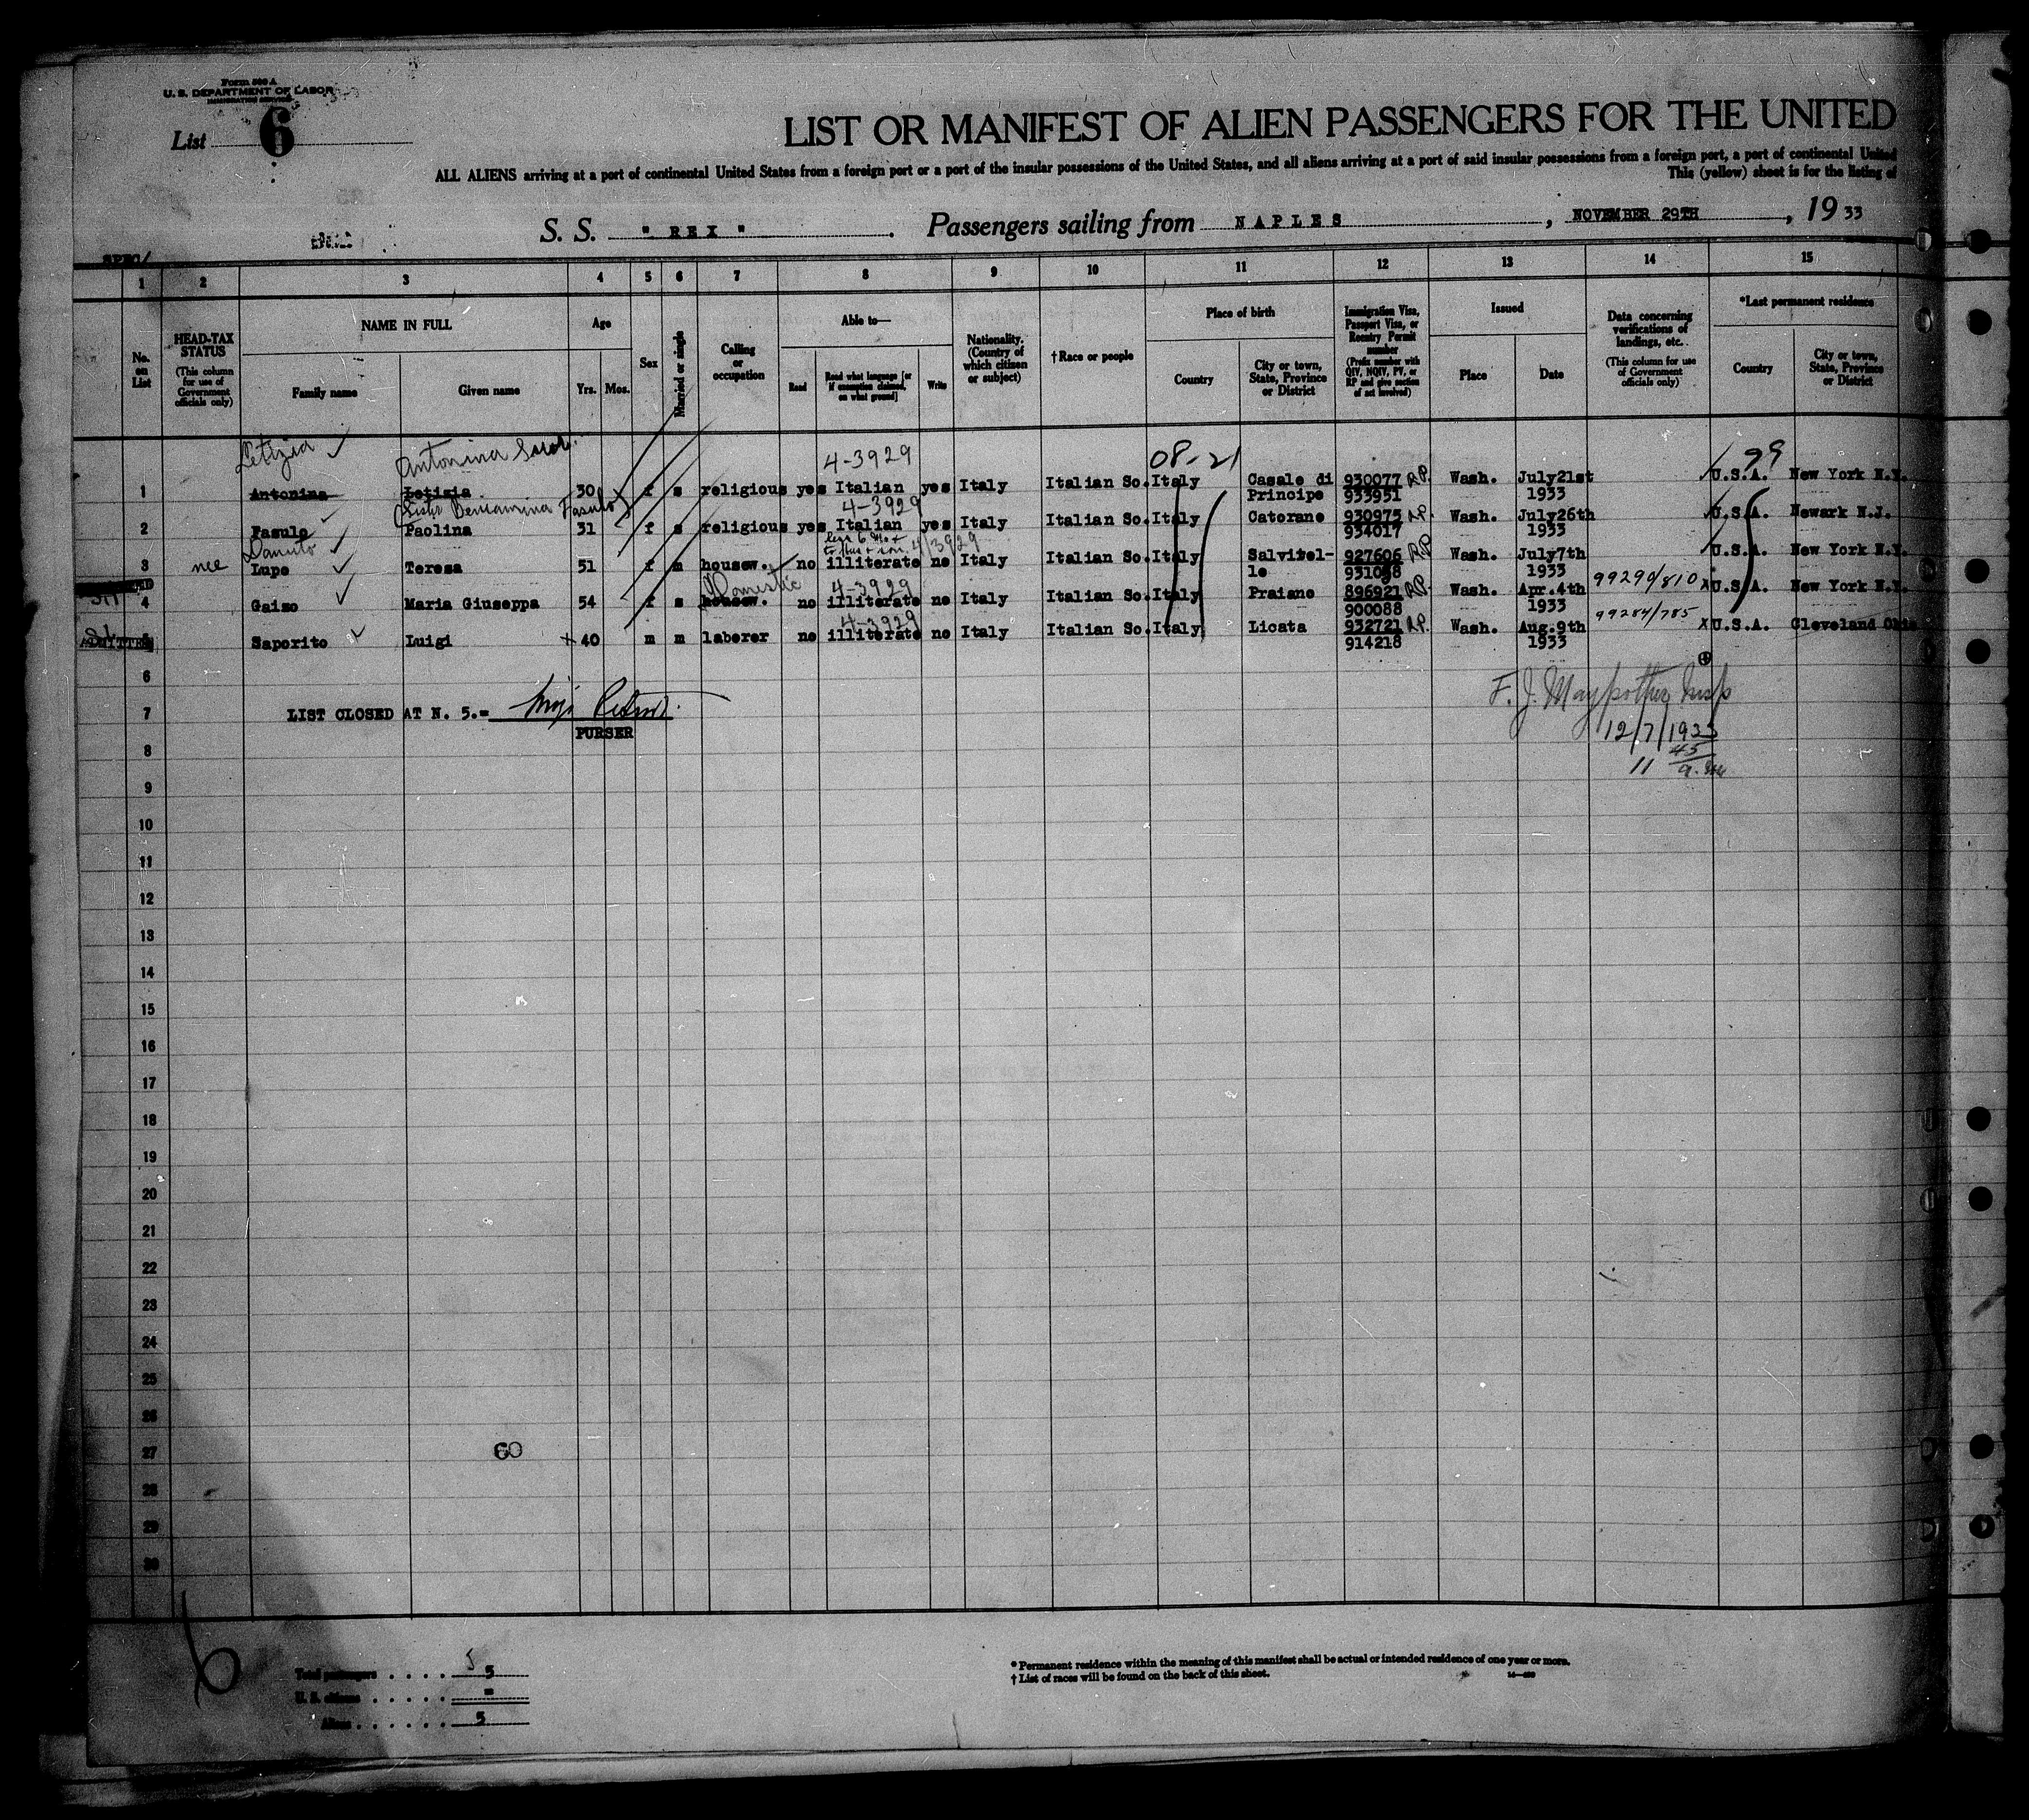 Form 500 A
U. S. DEPARTMENT OF LABOR
IMMIGRATION SERVICE
List 6
LIST OR MANIFEST OF ALIEN PASSENGERS FOR THE UNITED
ALL ALIENS arriving at a port of continental United States from a foreign port or a port of the insular possessions of the United States, and all aliens arriving at a port of said insular possessions from a foreign port, a port of continental United
This (yellow) sheet is for the listing of
S. S. " REX " . Passengers sailing from NAPLES , NOVEMBER 29TH , 19 33
1 2 3 4 5 6 7 8 9 10 11 12 13 14 15
No. on List
HEAD-TAX STATUS (This column for use of Government officials only)
NAME IN FULL
Family name Given name
Age
Yrs. Mos.
Sex
Married or single
Calling or occupation
Able to—
Read Read what language [or if exemption claimed, on what ground] Write
Nationality. (Country of which citizen or subject)
†Race or people
Place of birth
Country City or town, State, Province or District
Immigration Visa, Passport Visa, or Reentry Permit number (Prefix number with QIV, NQIV, PV, or RP and give section of act involved)
Issued
Place Date
Data concerning verifications of landings, etc. (This column for use of Government officials only)
*Last permanent residence
Country City or town, State, Province or District
Letizia Antonina 4-3929 08-21 99
1 Antonina Letizia 30 f s religious yes Italian yes Italy Italian So. Italy Casale di 930077 RP. Wash. July21st U.S.A. New York N.Y.
Principe 933951 1933
(Sister Beniamina Fasulo) 4-3929
2 Fasulo Paolina 31 f s religious yes Italian yes Italy Italian So. Italy Catorano 930975 RP. Wash. July26th U.S.A. Newark N.J.
934017 1933
Damuto 4/3929
3 nee Lupo Teresa 51 f m housew. no illiterate no Italy Italian So. Italy Salvitel- 927606 RP Wash. July7th U.S.A. New York N.Y.
le 1933
Domestic 4-3929
4 Gaiso Maria Giuseppa 54 f s housew. no illiterate no Italy Italian So. Italy Praiano 896921 RP. Wash. Apr.4th 99290/810 x U.S.A. New York N.Y.
900088 1933
4-3929
ADMITTED 5 Saporito Luigi x 40 m m laborer no illiterate no Italy Italian So. Italy Licata 932721 RP. Wash. Aug.9th 99284/785 x U.S.A. Cleveland Ohio
914218 1933
6
7 LIST CLOSED AT N. 5.=
PURSER
F. J. Maypother Insp
12/7/1933
8
9
10
11
12
13
14
15
16
17
18
19
20
21
22
23
24
25
26
27
60
28
29
30
6
Total passengers . . . . 5 5
U. S. citizens . . . . . =
Aliens . . . . . . 5
* Permanent residence within the meaning of this manifest shall be actual or intended residence of one year or more.
† List of races will be found on the back of this sheet.